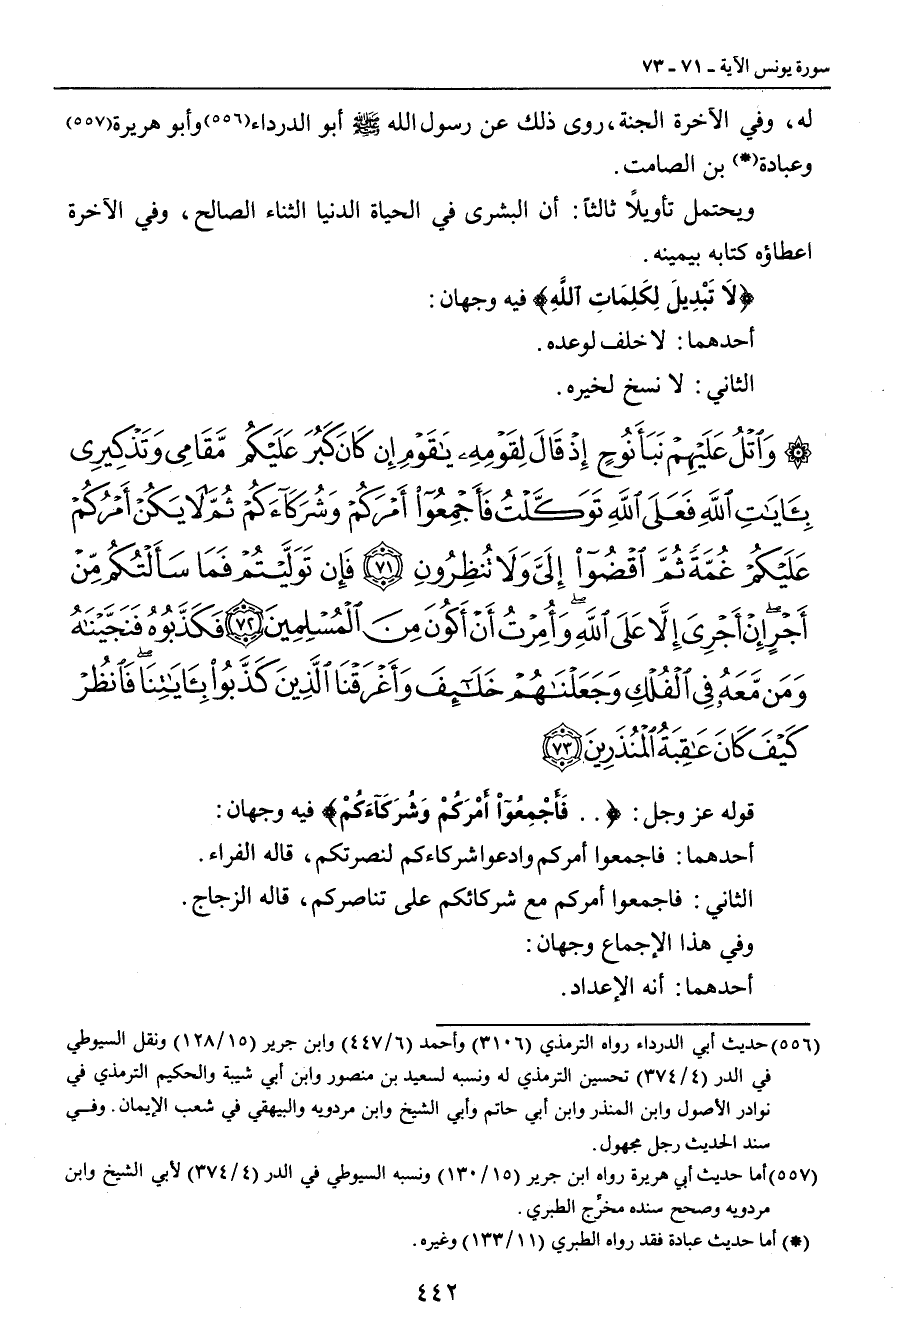 سورة يونس الآية ـ ٧١ ـ ٧٣
له، وفي الآخرة الجنة، روى ذلك عن رسول الله ﷺ أبو الدرداء(٥٥٦) وأبو هريرة(٥٥٧)
وعبادة(*) بن الصامت.
ويحتمل تأويلاً ثالثاً: أن البشرى في الحياة الدنيا الثناء الصالح، وفي الآخرة
اعطاؤه كتابه بيمينه.
﴿لَا تَبْدِيلَ لِكَلِمَاتِ ٱللَّهِ﴾ فيه وجهان:
أحدهما: لا خلف لوعده.
الثاني: لا نسخ لخيره.
۞ وَٱتْلُ عَلَيْهِمْ نَبَأَ نُوحٍ إِذْ قَالَ لِقَوْمِهِۦ يَٰقَوْمِ إِن كَانَ كَبُرَ عَلَيْكُم مَّقَامِى وَتَذْكِيرِى
بِـَٔايَٰتِ ٱللَّهِ فَعَلَى ٱللَّهِ تَوَكَّلْتُ فَأَجْمِعُوٓا۟ أَمْرَكُمْ وَشُرَكَآءَكُمْ ثُمَّ لَا يَكُنْ أَمْرُكُمْ
عَلَيْكُمْ غُمَّةً ثُمَّ ٱقْضُوٓا۟ إِلَىَّ وَلَا تُنظِرُونِ ﴿٧١﴾ فَإِن تَوَلَّيْتُمْ فَمَا سَأَلْتُكُم مِّنْ
أَجْرٍ ۖ إِنْ أَجْرِىَ إِلَّا عَلَى ٱللَّهِ ۖ وَأُمِرْتُ أَنْ أَكُونَ مِنَ ٱلْمُسْلِمِينَ ﴿٧٢﴾ فَكَذَّبُوهُ فَنَجَّيْنَٰهُ
وَمَن مَّعَهُۥ فِى ٱلْفُلْكِ وَجَعَلْنَٰهُمْ خَلَٰٓئِفَ وَأَغْرَقْنَا ٱلَّذِينَ كَذَّبُوا۟ بِـَٔايَٰتِنَا ۖ فَٱنظُرْ
كَيْفَ كَانَ عَٰقِبَةُ ٱلْمُنذَرِينَ ﴿٧٣﴾
قوله عز وجل: ﴿. . فَأَجْمِعُوٓا۟ أَمْرَكُمْ وَشُرَكَآءَكُمْ﴾ فيه وجهان:
أحدهما: فاجمعوا أمركم وادعوا شركاءكم لنصرتكم، قاله الفراء.
الثاني: فاجمعوا أمركم مع شركائكم على تناصركم، قاله الزجاج.
وفي هذا الإجماع وجهان:
أحدهما: أنه الإعداد.
(٥٥٦) حديث أبي الدرداء رواه الترمذي (٣١٠٦) وأحمد (٤٤٧/٦) وابن جرير (١٢٨/١٥) ونقل السيوطي
في الدر (٣٧٤/٤) تحسين الترمذي له ونسبه لسعيد بن منصور وابن أبي شيبة والحكيم الترمذي في
نوادر الأصول وابن المنذر وابن أبي حاتم وأبي الشيخ وابن مردويه والبيهقي في شعب الإيمان. وفي
سند الحديث رجل مجهول.
(٥٥٧) أما حديث أبي هريرة رواه ابن جرير (١٣٠/١٥) ونسبه السيوطي في الدر (٣٧٤/٤) لأبي الشيخ وابن
مردويه وصحح سنده مخرِّج الطبري.
(*) أما حديث عبادة فقد رواه الطبري (١٣٣/١١) وغيره.
٤٤٢